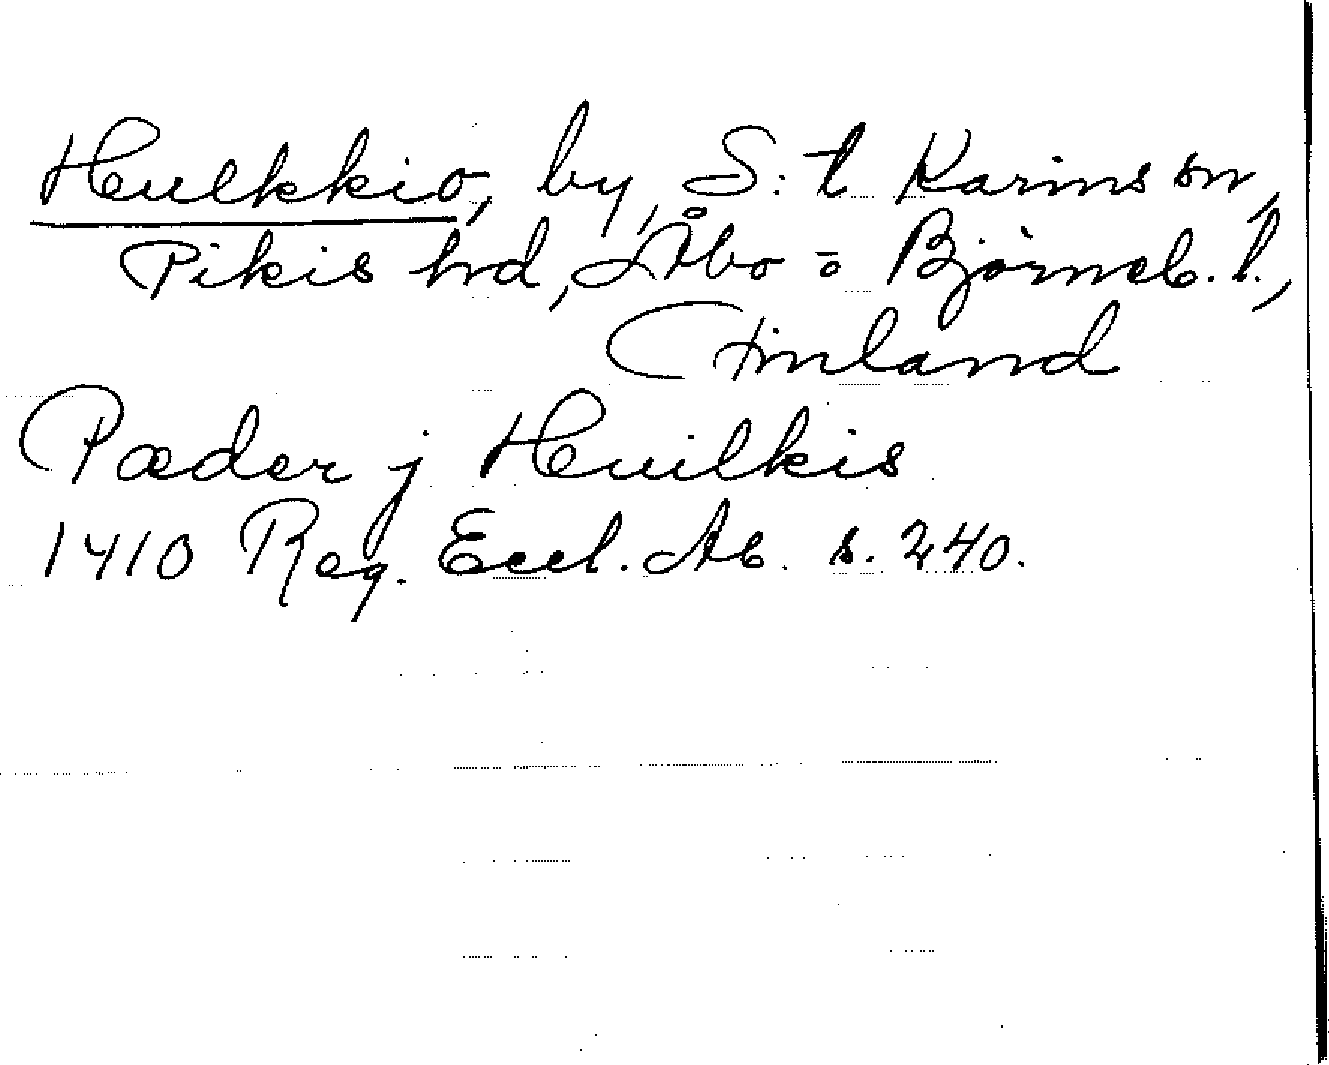 Heulkkio, by, S:t Karins sn,
Pikis hrd, Åbo = Bjørneb. l.,
Finland
Pæder j Heuilkis
1410 Reg. Eccl. Ab. s. 240.